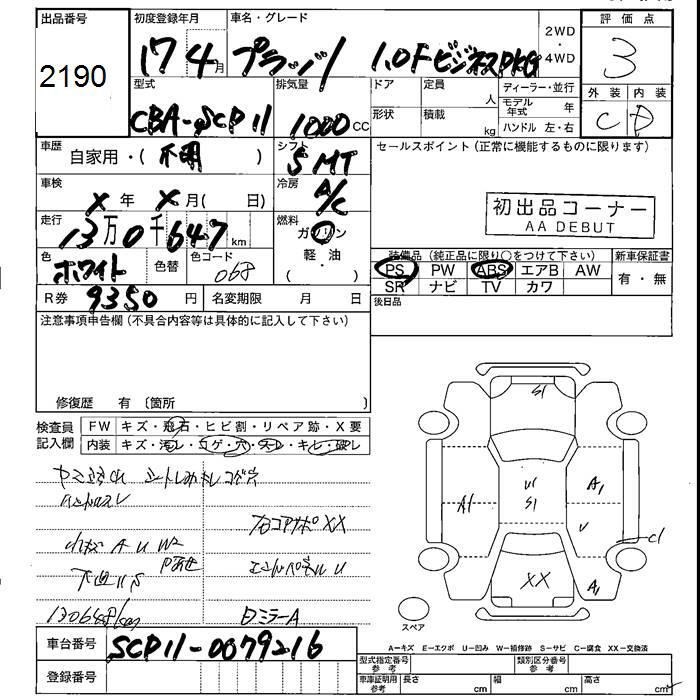 出品番号
2190
初度登録年月
17 4月
車名・グレード
プラッツ 1.0F ビジネスPKG
2WD
・
4WD
評価点
3
外装 内装
C D
型式
CBA-SCP11
排気量
1000 CC
ドア
定員
人
形状
積載
kg
ディーラー・並行
モデル年式 年
ハンドル 左・右
車歴
自家用・( 不明 )
シフト
5 MT
セールスポイント(正常に機能するものに限ります)
初出品コーナー
AA DEBUT
車検
X 年 X 月( 日)
冷房
A/C
走行
13万0千647 km
燃料
ガソリン
軽・油
( )
色
ホワイト
色替
色コード
068
装備品(純正品に限り○をつけて下さい)
PS PW ABS エアB AW
SR ナビ TV カワ
新車保証書
有・無
R券 9350 円
名変期限 月 日
後日品
注意事項申告欄(不具合内容等は具体的に記入して下さい)
修復歴 有〔箇所 〕
検査員
記入欄
FW キズ・飛石・ヒビ割・リペア跡・X要
内装 キズ・汚レ・コゲ・穴・スレ・キレ・破レ
ハンドルスレ
コアサポXX
A U W2
下廻りS
エンドパネルU
130647km
ミラーA
S1
U1
S1
A1
A1
U
C1
XX
A1
スペア
車台番号 SCP11-0079216
登録番号
A-キズ E-エクボ U-凹み W-補修跡 S-サビ C-腐食 XX-交換済
型式指定番号
参考
類別区分番号
参考
車庫証明用
参考
長さ cm
幅 cm
高さ cm